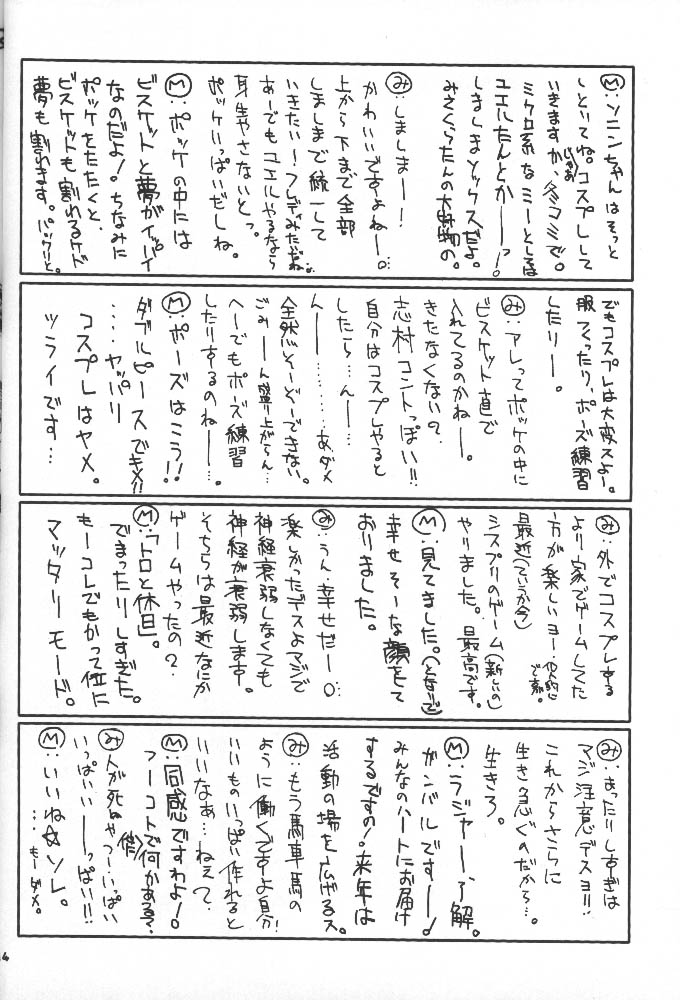 Ⓜ:ソニンちゃんはそっと
しといてね。コスプレして
じゃあ
いきますか、冬コミで。
ミクロ系なミーとしては
ユエルたんとかーっ!
しましまソックスだよ。
みさくらたんの大好物の。
み:しましまー!
かわいいですよねー。
上から下まで全部
しましまで統一して
いきたいー!フレディみたいだね…
あーでもユエルやるなら
身生やさないとっ。
ポッケいっぱいだしね。
Ⓜ:ポッケの中には
ビスケットと夢がイッパイ
なのだよ!ちなみに
ポッケをたたくと、
ビスケットも割れるケド
夢も割れます。パックリーと。
でもコスプレは大変スよー。
服つくったり、ポーズ練習
したりー。
み:アレってポッケの中に
ビスケット直で
入れてるのかねー。
きたなくないの?
志村コントっぽい!!
自分はコスプレやると
したら…んー…
んー…………あ、ダメ
全然そーぞーできない。
ごみーん盛り上がらん…
へーでもポーズ練習
したりするのねー…。
Ⓜ:ポーズはこう!!
ダブルピースでキメ!!
……ヤッパリ
コスプレはヤメ。
ツライです…
み:外でコスプレする
より家でゲームしてた
方が楽しいヨー。個人的に
です。
最近(ていうか今)
シスプリのゲーム(新しいの)
やりました。最高です。
Ⓜ:見てました。(となりで)
幸せそーな顔をして
おりました。
み:うん、幸せだー。
楽しかったデスよマジで
神経衰弱しなくても
神経が衰弱します。
そちらは最近なにか
ゲームやったの?
Ⓜ:「トロと休日」。
でまったりしすぎた。
もーコレでもかって位に
マッタリモード。
み:まったりしすぎは
マジ注意デスヨ!!
これからさらに
生き急ぐのだから…。
生きろ。
Ⓜ:ラジャー、了解。
ガンバルですー!
みんなのハートにお届け
するですの!来年は
活動の場を広げるス。
み:もう馬車馬の
ように働くですよ自分!
いいものいっぱい作れると
いいなあ…ねえ?
Ⓜ:同感ですわよ!
つーコトで何かある?
(作)
み:人が死ぬやつーいっぱい
いっぱいいーっぱい!!
Ⓜ:いいね☆ソレ。
…もーダメ。
4